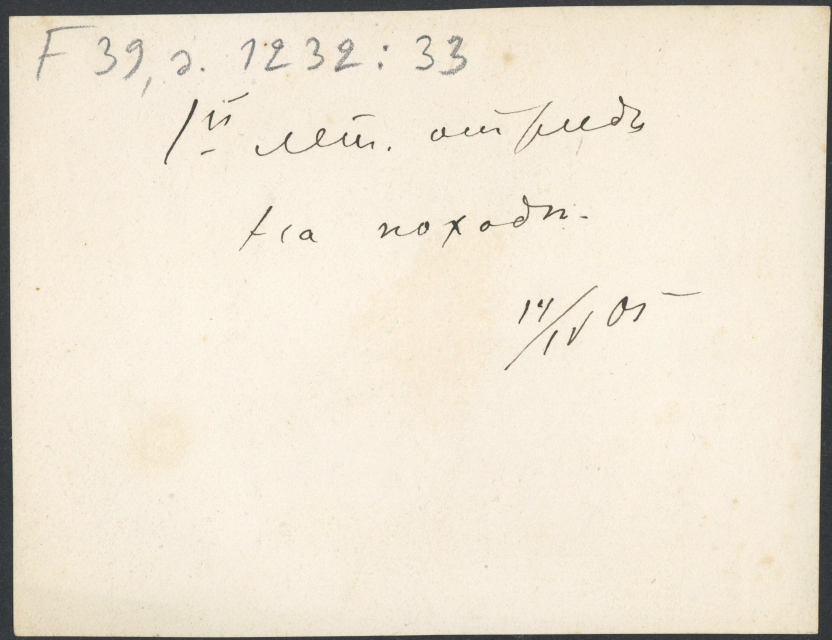 F 39, s. 1232:33
1й лет. отрядъ
на походѣ.
14/IV 05